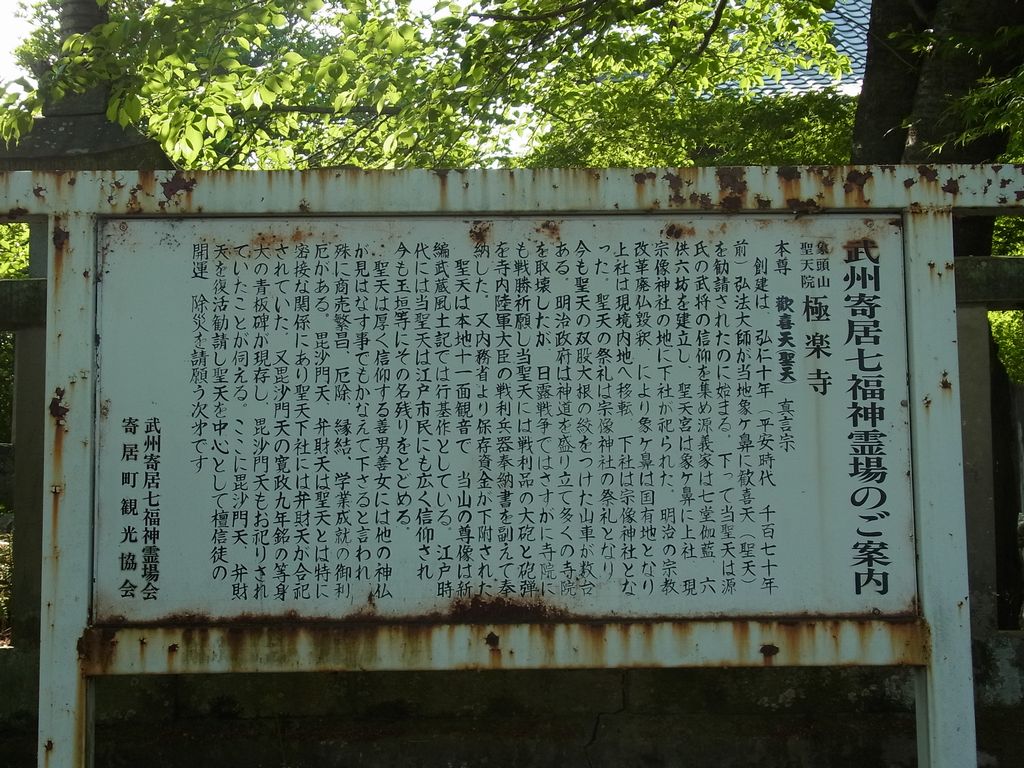 武州寄居七福神霊場のご案内
象頭山
聖天院 極楽寺
本尊 歓喜天(聖天) 真言宗
創建は、弘仁十年(平安時代 千百七十年
前)弘法大師が当地象ヶ鼻に歓喜天(聖天)
を勧請されたのに始まる。下って当聖天は源
氏の武将の信仰を集め源義家は七堂伽藍、六
供六坊を建立し、聖天宮は象ヶ鼻に上社、現
宗像神社の地に下社が祀られた。明治の宗教
改革廃仏毀釈、により象ヶ鼻は国有地となり
上社は現境内地へ移転、下社は宗像神社とな
った。聖天の祭礼は宗像神社の祭礼となり
今も聖天の双股大根の紋をつけた山車が数台
ある。明治政府は神道を盛り立て多くの寺院
を取壊したが、日露戦争ではさすがに寺院に
も戦勝祈願し当聖天には戦利品の大砲と砲弾
を寺内陸軍大臣の戦利兵器奉納書を副えて奉
納した。又内務省より保存資金が下附された
聖天は本地十一面観音で、当山の尊像は新
編武蔵風土記では行基作としている。江戸時
代には当聖天は江戸市民にも広く信仰され
今も玉垣等にその名残りをとどめる。
聖天は厚く信仰する善男善女には他の神仏
が見はなす事でもかなえて下さると言われれ
殊に商売繁昌、厄除、縁結、学業成就の御利
厄がある。毘沙門天、弁財天は聖天とは特に
密接な関係にあり聖天下社には弁財天が合祀
されていた、又毘沙門天の寛政九年銘の等身
大の青板碑が現存し、毘沙門天もお祀りされ
ていたことが伺える。ここに毘沙門天、弁財
天を復活勧請し聖天を中心として檀信徒の
開運、除災を請願う次才です
武州寄居七福神霊場会
寄居町観光協会